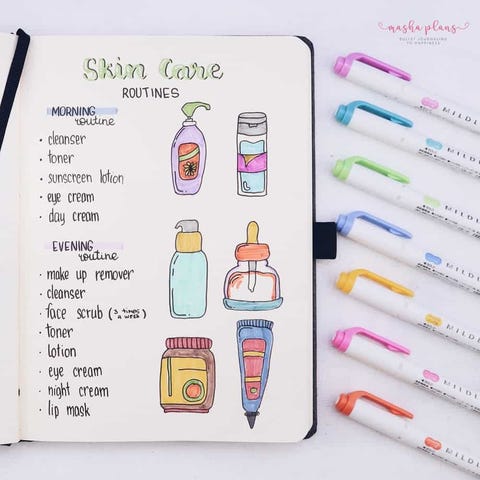 masha plans
BULLET JOURNALING
TO HAPPINESS
Skin Care
ROUTINES
MORNING
routine
• cleanser
• toner
• sunscreen lotion
• eye cream
• day cream
EVENING
routine
• make up remover
• cleanser
• face scrub (3 times a week)
• toner
• lotion
• eye cream
• night cream
• lip mask
MILDL
MILDL
MILDL
MILDL
MILDL
MILDL
MILDL